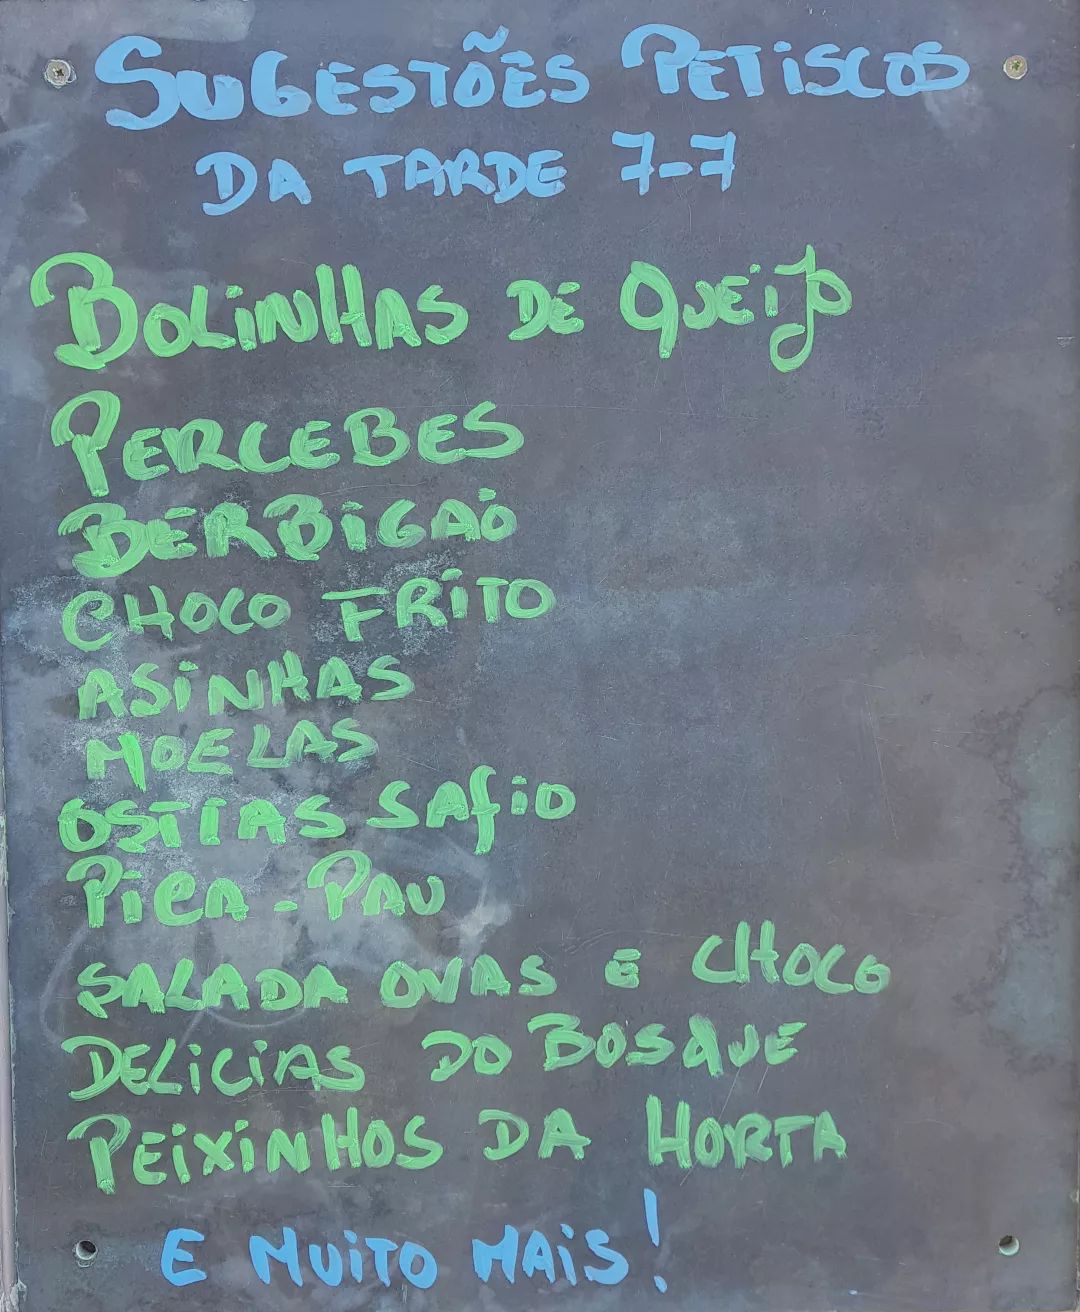 SUGESTÕES PETISCOS
DA TARDE 7-7
BOLINHAS DE QUEIJO
PERCEBES
BERBIGÃO
CHOCO FRITO
ASINHAS
MOELAS
OSTIAS SAFIO
PICA-PAU
SALADA OVAS E CHOCO
DELICIAS DO BOSQUE
PEIXINHOS DA HORTA
E MUITO MAIS!